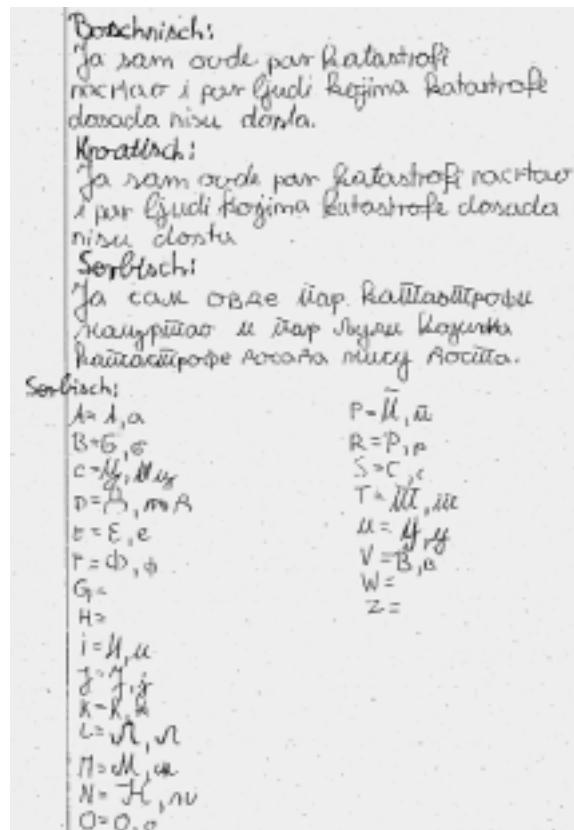 Boschnisch:
Ja sam ovde par katastrofi
nacrtao i par ljudi kojima katastrofe
dosada nisu dosta.
Kroatisch:
Ja sam ovde par katastrofi nacrtao
i par ljudi kojima katastrofe dosada
nisu dosta
Serbisch:
Ја сам овде пар катастрофи
и пар
катастрофе досада нису доста.
Serbisch:
A= А, а
B=Б, б
C=Ц, ц
D=Д, д
E=Е, е
F=Ф, ф
G=
H=
i=И, и
J=Ј, ј
K=К, к
L=Л, л
M=М, м
N=Н, н
O=О, о
P=П, п
R=Р, р
S=С, с
T=Т, т
U=У, у
V=В, в
W=
Z=